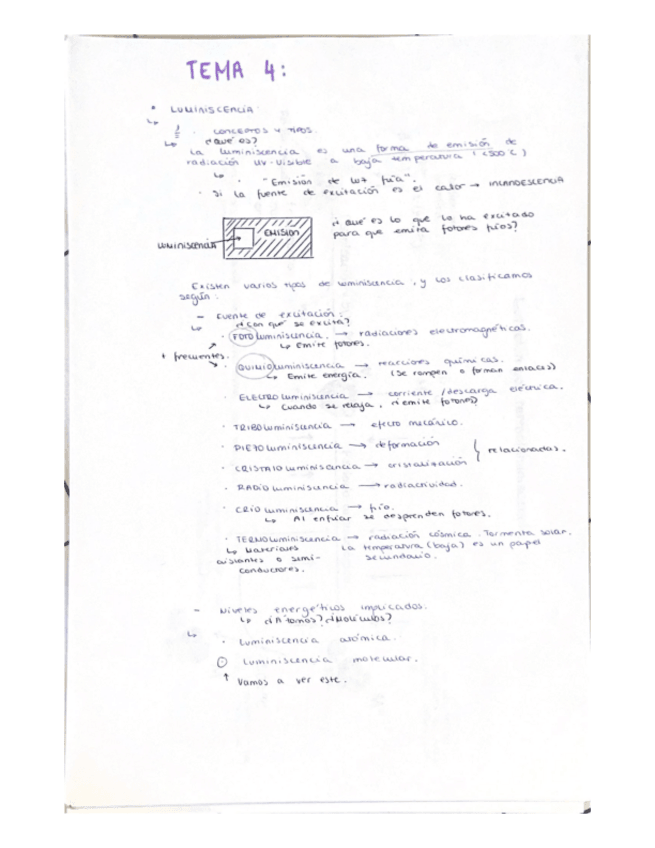 TEMA 4:
• LUMINISCENCIA
↳ 1. CONCEPTOS Y TIPOS.
↳ ¿Qué es?
La luminiscencia es una forma de emisión de
radiación UV-Visible a baja temperatura (<500°C)
↳ · "Emisión de luz fría".
· Si la fuente de excitación es el calor → INCANDESCENCIA
EMISION
LUMINISCENCIA
¿Qué es lo que lo ha excitado
para que emita fotones fríos?
Existen varios tipos de luminiscencia, y los clasificamos
según:
– Fuente de excitación:
↳ ¿Con qué se excita?
· FOTOluminiscencia. → radiaciones electromagnéticas.
↳ Emite fotones.
+ frecuentes.
· QUIMIOluminiscencia → reacciones químicas.
↳ Emite energía. (Se rompen o forman enlaces)
· ELECTROluminiscencia → corriente/descarga eléctrica.
↳ Cuando se relaja, ¿emite fotones?
· TRIBOluminiscencia → efecto mecánico.
· PIEZOluminiscencia → deformación
· CRISTALOluminiscencia → cristalización
relacionadas.
· RADIOluminiscencia → radiactividad.
· CRIOluminiscencia → frío.
↳ Al enfriar se desprenden fotones.
· TERMOluminiscencia → radiación cósmica. Tormenta solar.
↳ Materiales aislantes o semi-conductores.
La temperatura (baja) es un papel
secundario.
– Niveles energéticos implicados.
↳ ¿Átomos? ¿Moléculas?
↳ · Luminiscencia atómica.
○ Luminiscencia molecular.
↑ Vamos a ver este.